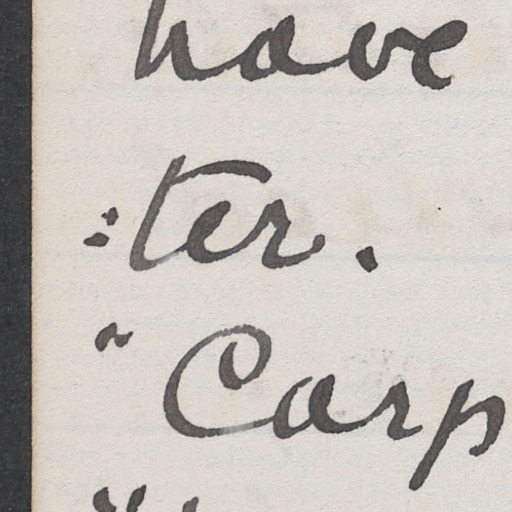 have
:ter.
"Carp